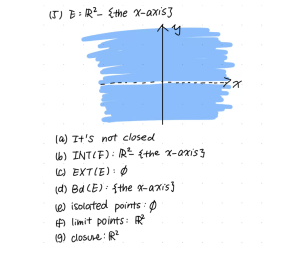 (5) E : ℝ² - {the x-axis}
y
x
(a) It's not closed
(b) INT(E) : ℝ² - {the x-axis}
(c) EXT(E) : ∅
(d) Bd(E) : {the x-axis}
(e) isolated points : ∅
(f) limit points : ℝ²
(g) closure : ℝ²